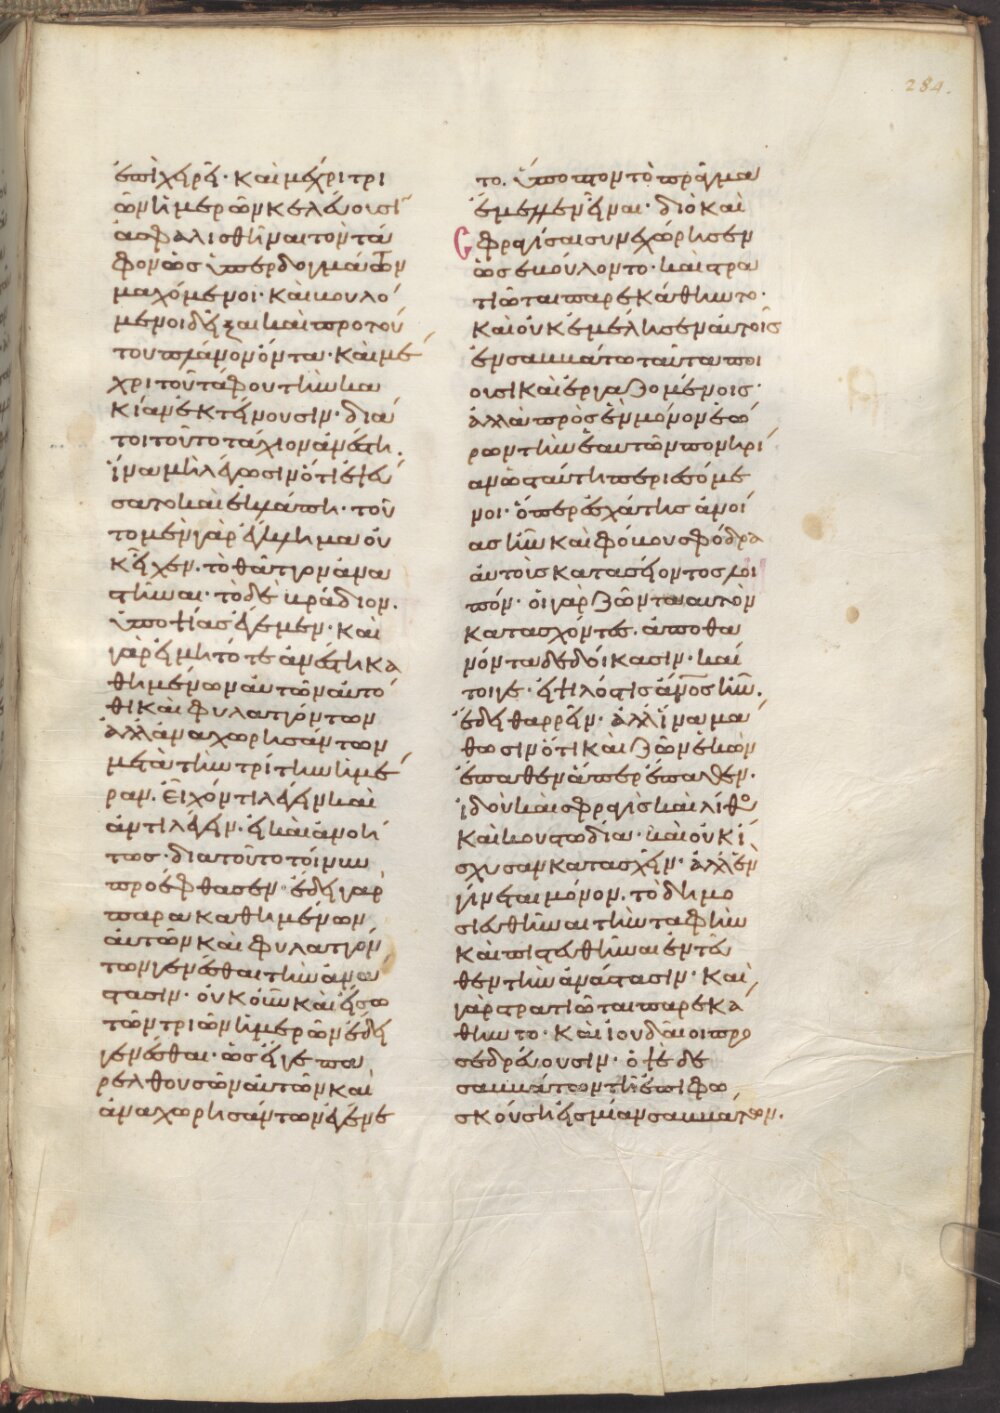 284.
ἐπιχειρεῖ· καὶ μέχρι τρι
ῶν ἡμερῶν κελεύουσιν
ἀσφαλισθῆναι τὸν τά
φον ὡς ὑπὲρ δογμάτων
μαχόμενοι· καὶ βουλό
μενοι δεῖξαι καὶ πρὸ τού
του πλάνον ὄντα· καὶ μέ
χρι τοῦ τάφου τὴν κα
κίαν ἐκτείνουσιν· διὰ
τοι τοῦτο τάχιον ἀνέστη.
ἵνα μὴ λέγωσιν ὅτι ἐψεύ
σατο καὶ ἐκλάπη· τοῦ
το μὲν γὰρ ἔγκλημα οὐ
κ εἶχεν. τὸ θᾶττον ἀνα
στῆναι· τὸ δὲ βράδιον.
ὑποψίας ἔγεμεν· καὶ
γὰρ εἰ μὴ τότε ἀνέστη κα
θημένων αὐτῶν αὐτό
θι καὶ φυλαττόντων
ἀλλ' ἀναχωρησάντων
μετὰ τὴν τρίτην ἡμέ
ραν. εἶχόν τι λέγειν καὶ
ἀντιλέγειν. εἰ καὶ ἀνοή
τως· διὰ τοῦτο τοίνυν
προέφθασεν· ἔδει γὰρ
παρακαθημένων
αὐτῶν καὶ φυλαττόν
των γενέσθαι τὴν ἀνά
στασιν· οὐκοῦν καὶ εἴσω
τῶν τριῶν ἡμερῶν ἔδει
γενέσθαι· ὡς εἴγε πα
ρελθουσῶν αὐτῶν καὶ
ἀναχωρησάντων ἐγένε
το. ὕποπτον τὸ πρᾶγμα
ἔμελλεν εἶναι· διὸ καὶ
Σφραγίσαι συνεχώρησεν
ὡς ἐβούλοντο· καὶ στρα
τιῶται παρεκάθηντο·
καὶ οὐκ ἔμελησεν αὐτοῖς
ἐν σαββάτω ταῦτα ποι
οῦσι καὶ ἐργαζομένοις·
ἀλλὰ πρὸς ἓν μόνον ἑώ
ρων τὴν ἑαυτῶν πονηρί
αν ὡς ταύτη περιεσόμε
νοι· ὅπερ ἐσχάτης ἀνοί
ας ἦν καὶ φόβου σφόδρα
αὐτοὺς κατασείοντος λοι
πόν· οἱ γὰρ ζῶντα αὐτὸν
κατασχόντες. ἀποθα
νόντα δεδοίκασιν· καί
τοιγε· εἰ ψιλός τις ἄνος ἦν.
ἔδει θαρρεῖν· ἀλλ' ἵνα μά
θωσιν ὅτι καὶ ζῶν ἑκὼν
ἔπαθεν ἅπερ ἔπαθεν·
ἰδοὺ καὶ σφραγὶς καὶ λίθος
καὶ κουστωδία· καὶ οὐκ ἴ
σχυσαν κατασχεῖν· ἀλλ' ἓν
γίνεται μόνον. τὸ δημο
σιευθῆναι τὴν ταφὴν
καὶ πιστευθῆναι ἐντεῦ
θεν τὴν ἀνάστασιν· καὶ
γὰρ στρατιῶται παρεκά
θηντο· καὶ ἰουδαῖοι προ
σεδρεύουσιν· ὀψὲ δὲ
σαββάτων τῆ ἐπιφω
σκούση εἰς μίαν σαββάτων.